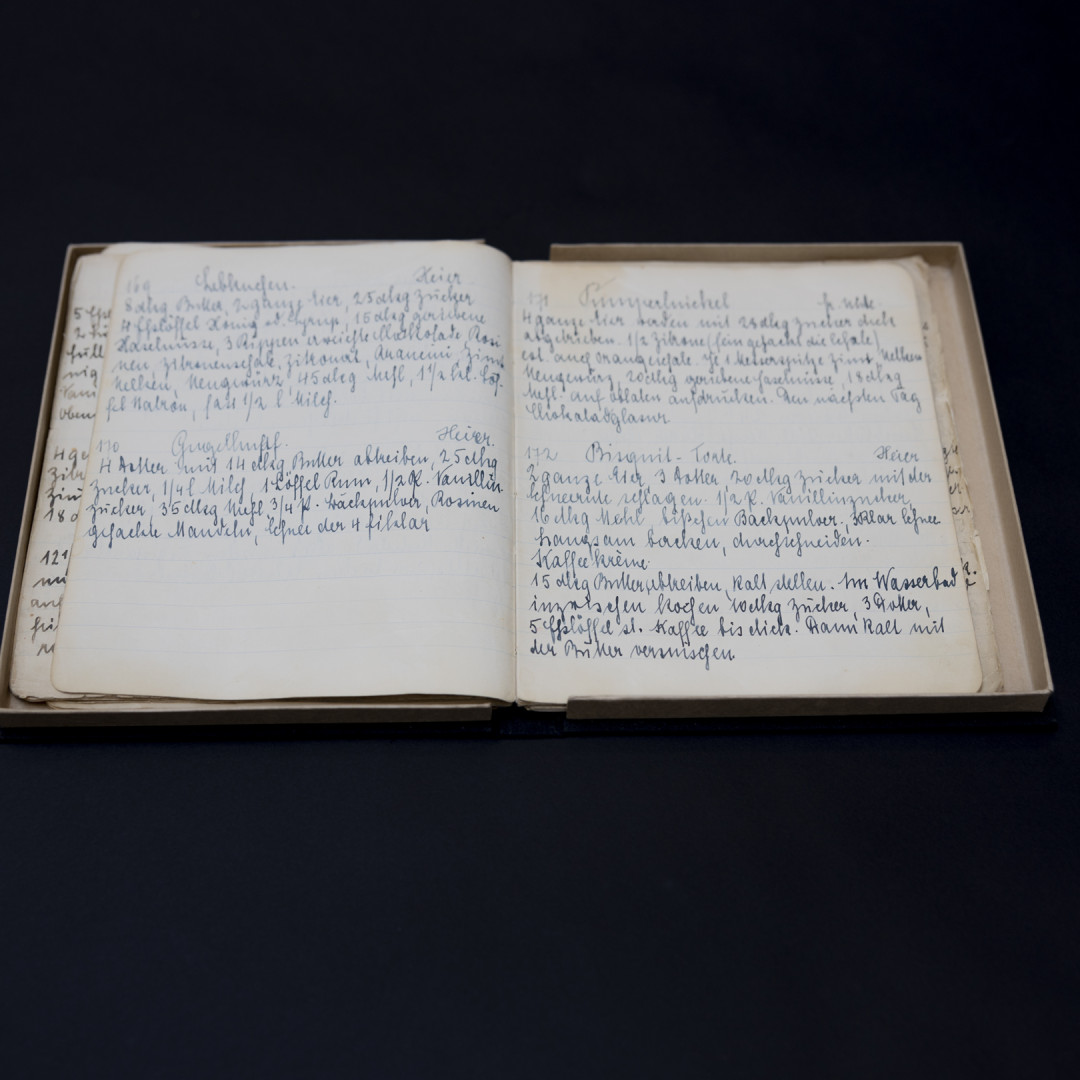 169 Lebkuchen. Heier
8 dkg Butter, 2 ganze Eier, 25 dkg Zucker
4 Esslöffel Honig od. Syrup, 15 dkg geriebene
Haselnüsse, 3 Rippen erweichte Schokolade Rosi
nen, Zitronenschale, Zitronat, Arancini Zimt
Nelken, Neugewürz, 45 dkg Mehl, 1 1/2
fel Natron, fast 1/2 l Milch.
170 Gugelhupf. Heier.
4 Dotter mit 14 dkg Butter abtreiben, 25 dkg
Zucker, 1/4 l Milch, 1 Löffel Rum, 1/2 P. Vanillin
zucker, 35 dkg Mehl 3/4 P. Backpulver, Rosinen
gehackte Mandeln, Schnee der 4 Eiklar
171 Pumpernickel
4 ganze Eier werden mit 28 dkg Zucker dick
abgetrieben. 1/2 Zitrone (fein gehackt die Schale)
est. auch Orangenschale. Je 1 Messerspitze Zimt Nelken
Neugewürz, 20 dkg geriebene Haselnüsse, 18 dkg
Mehl. auf Oblaten aufdrücken. Den nächsten Tag
Chokoladeglasur.
172 Bisquit-Torte. Heier
2 ganze Eier, 3 Dotter, 20 dkg Zucker mit der
Schneerute schlagen. 1/2 P. Vanillinzucker,
16 dkg Mehl, bißchen Backpulver, 3 Klar Schnee
langsam backen, durchschneiden.
Kaffeekrème
15 dkg Butter abtreiben, kalt stellen. Im Wasserbad
inzwischen kochen 10 dkg Zucker, 3 Dotter,
5 Esslöffel st. Kaffee bis dick. Dann kalt mit
der Butter vermischen.